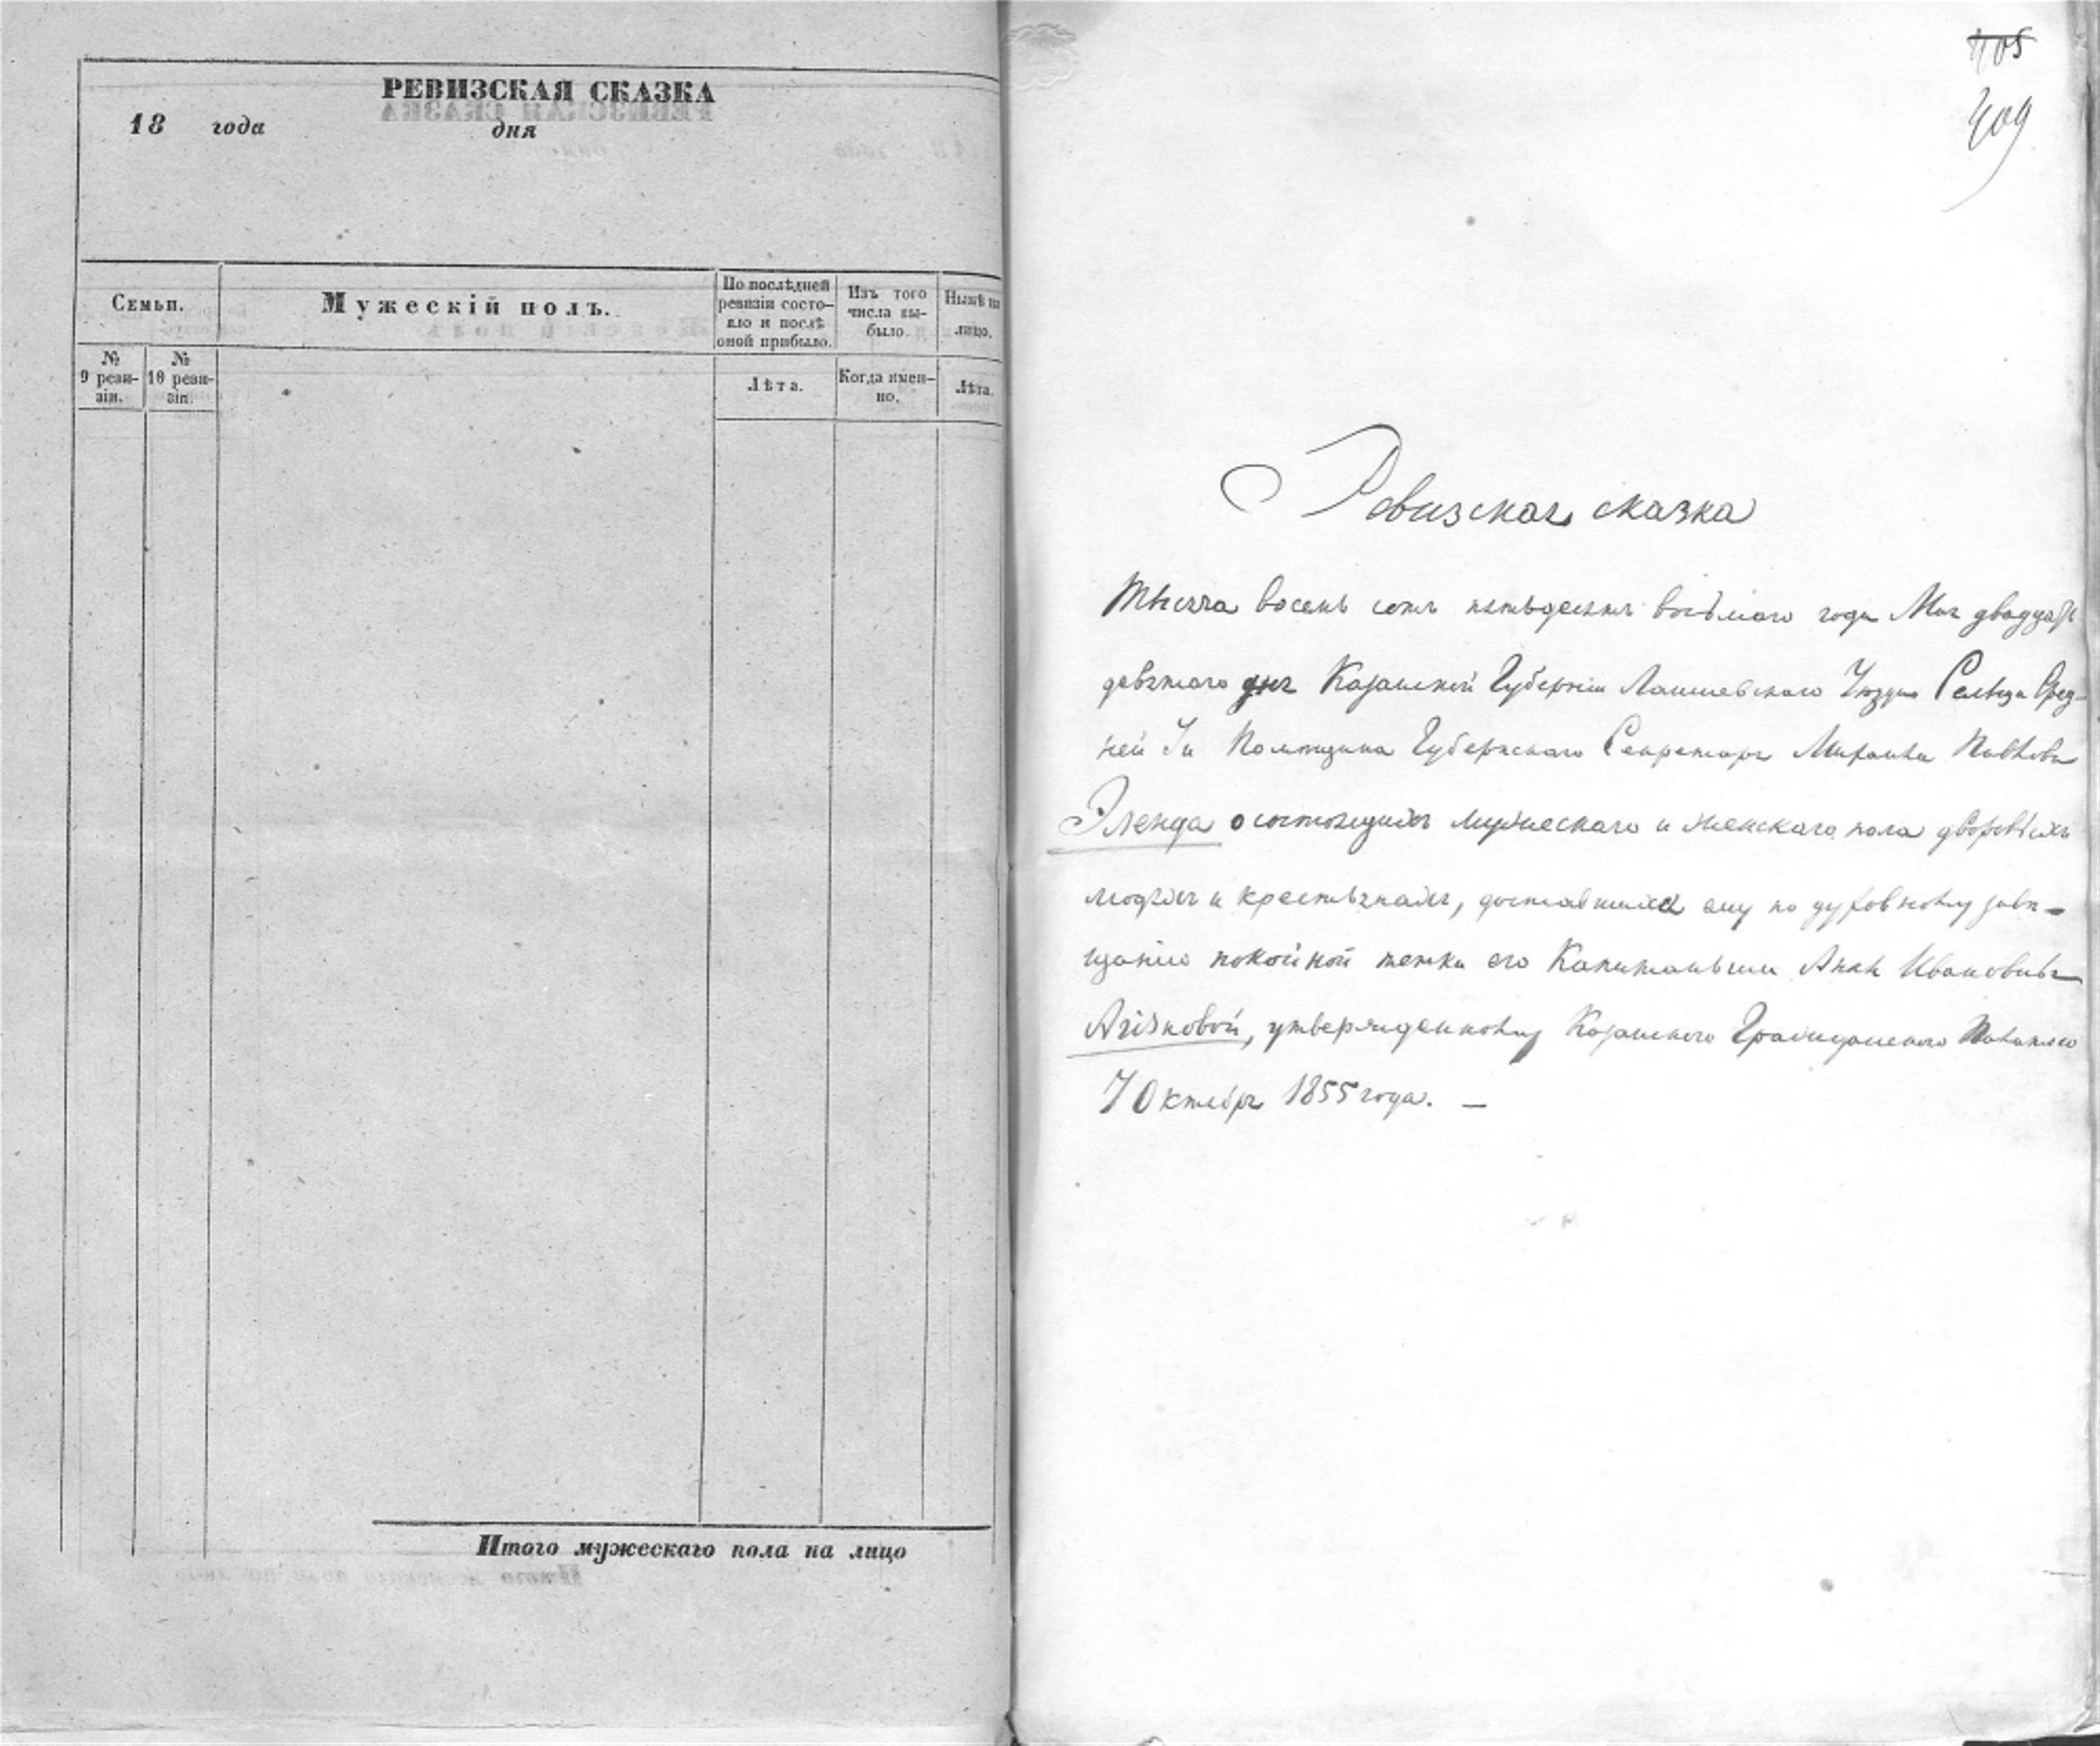 РЕВИЗСКАЯ СКАЗКА
18 года дня
Семьи.
Мужескій полъ.
По послѣдней ревизіи состо-
яло и послѣ
оной прибыло.
Изъ того
числа вы-
было.
Нынѣ на
лицо.
№
9 реви-
зіи.
№
10 реви-
зіи.
Лѣта.
Когда имен-
но.
Лѣта.
Итого мужескаго пола на лицо
405
409
Ревизская сказка
Тысяча восемь сотъ пятьдесятъ восьмаго года Мая двадцать
девятаго дня Казанской Губерніи Лаишевскаго Уѣзда Сельца Сред-
ней Ии Помѣщика Губернскаго Секретаря Михаила Павлова
Эленда о состоящихъ мужескаго и женскаго пола дворовыхъ
людяхъ и крестьянахъ, доставшихся ему по духовному завѣ-
щанію покойной тетки его Капитанши Анны Ивановны
утвержденному Казанского Гражданского Палатою
7 Октября 1855 года. —